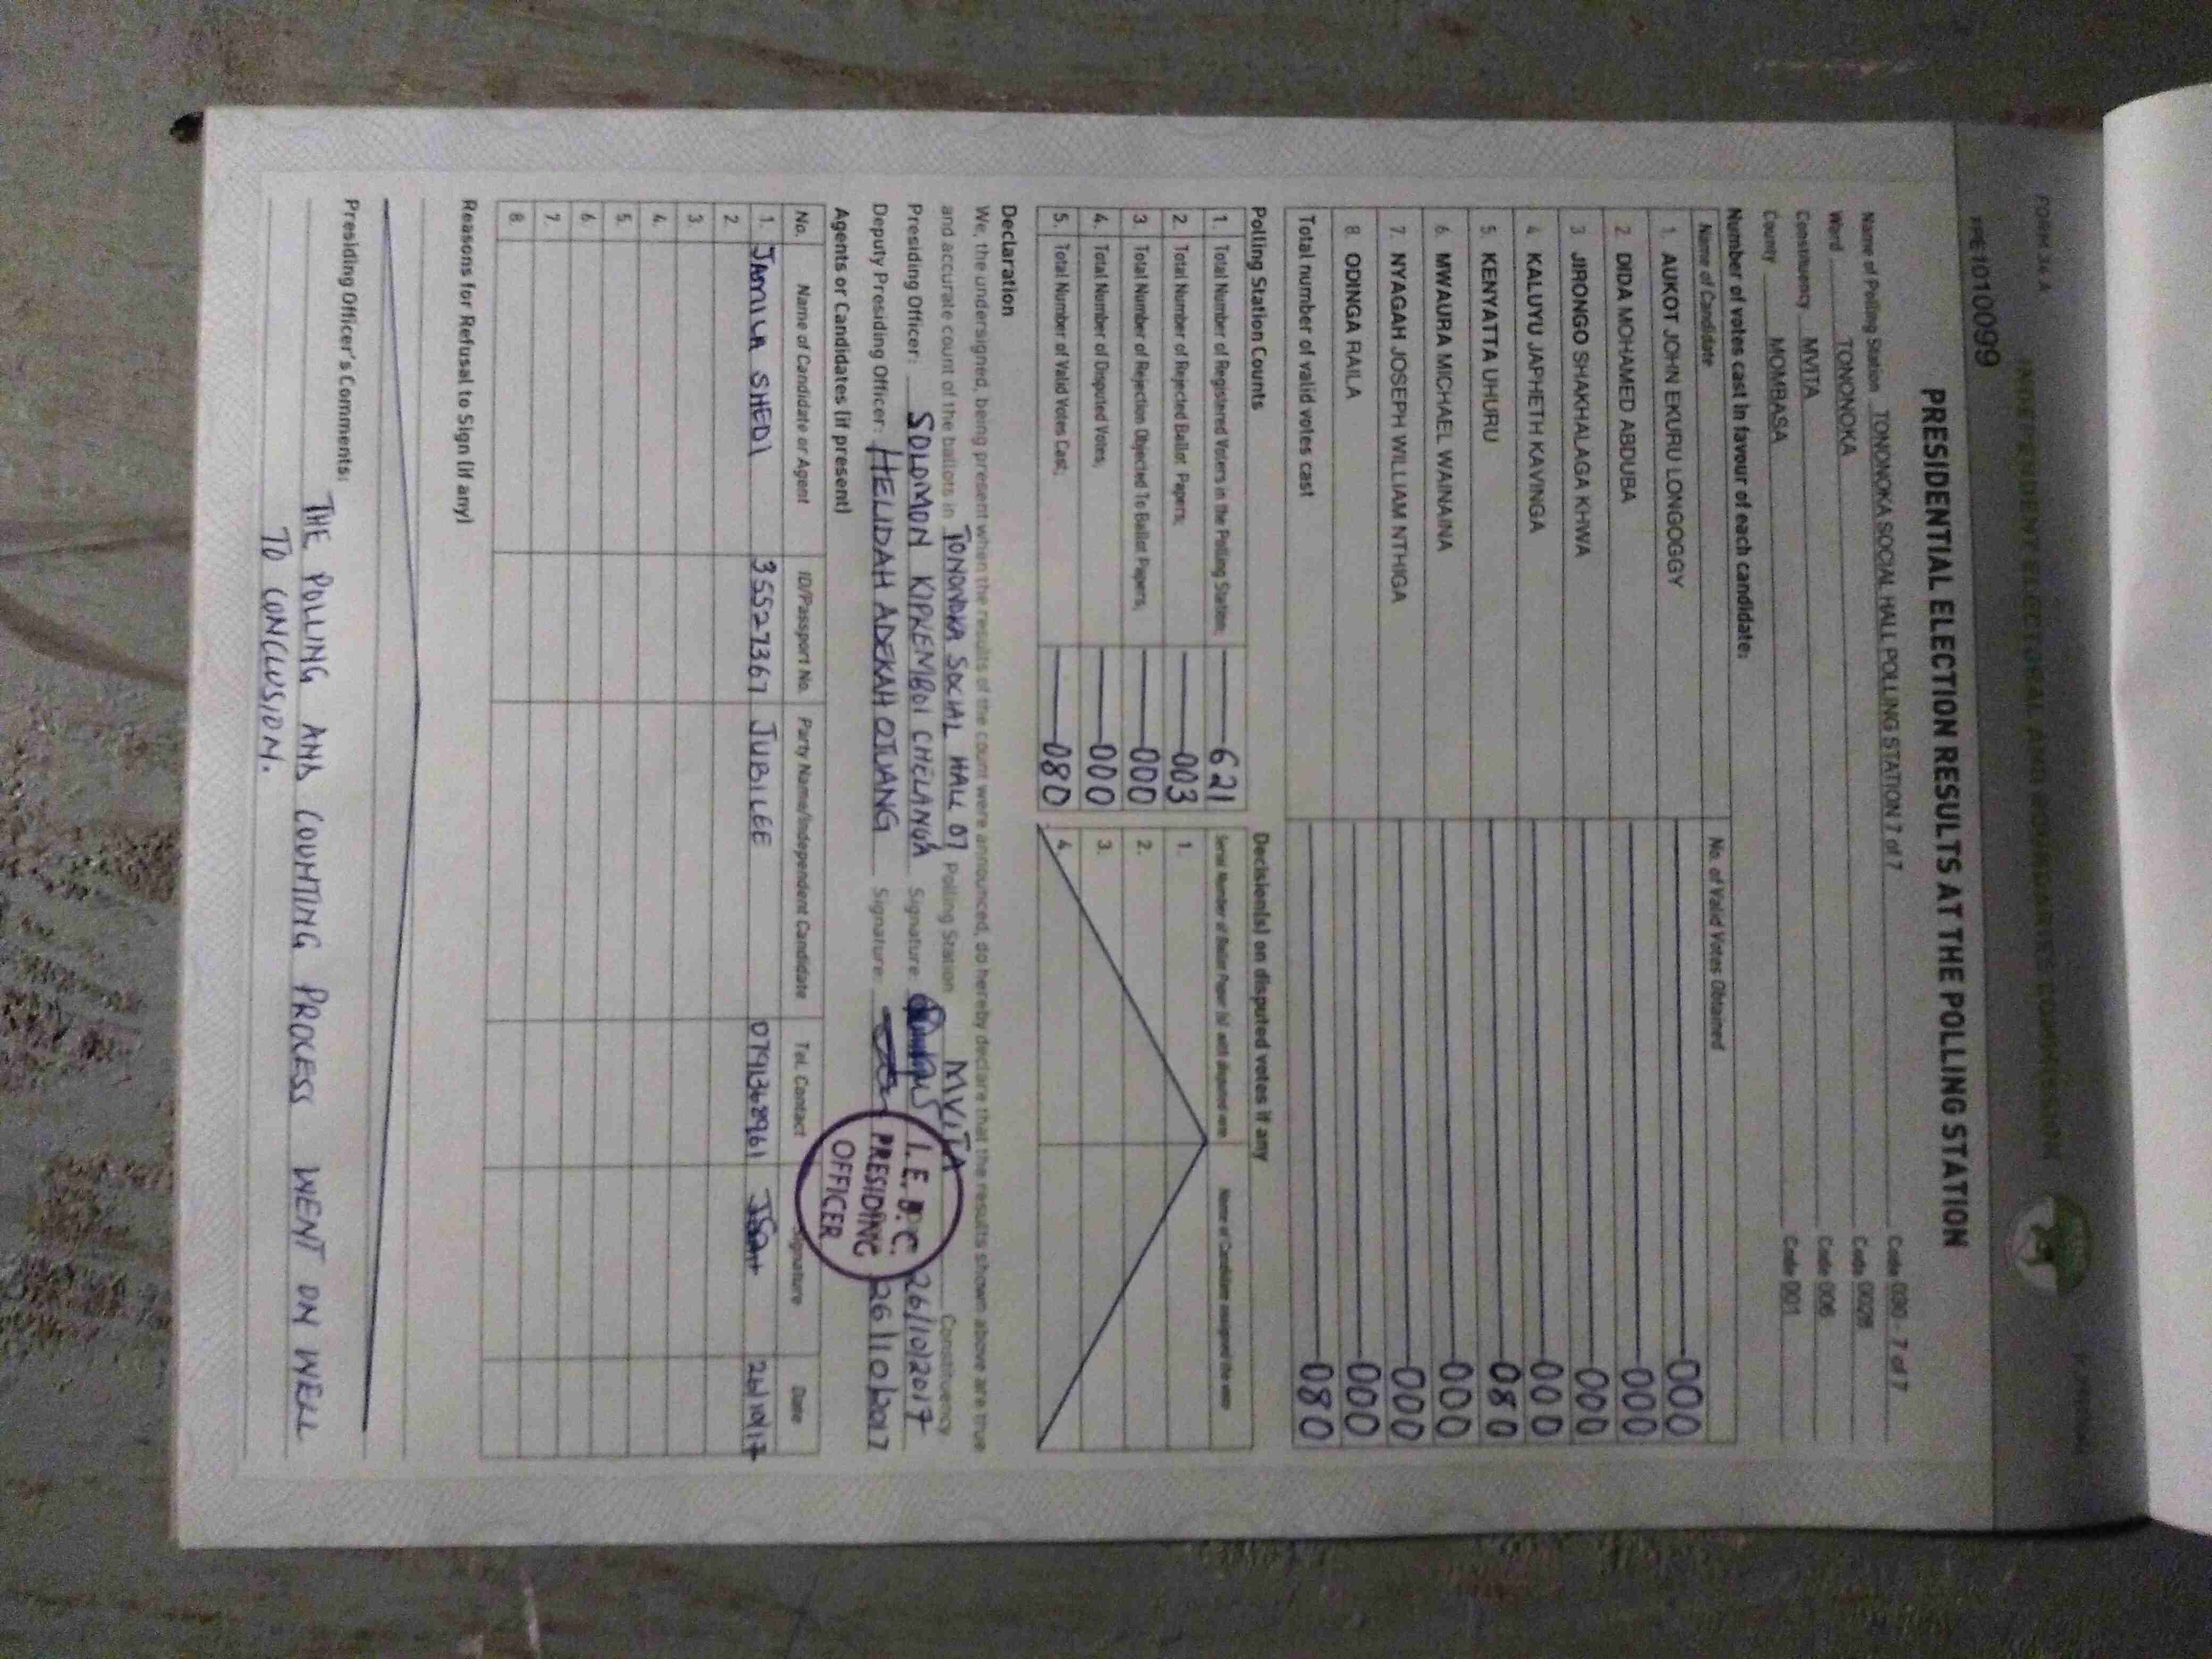 FORM 34 A
INDEPENDENT ELECTORAL AND BOUNDARIES COMMISSION
PRE1010099
PRESIDENTIAL ELECTION RESULTS AT THE POLLING STATION
Name of Polling Station TONONOKA SOCIAL HALL POLLING STATION 7 of 7 Code 030 - 7 of 7
Ward TONONOKA Code 0028
Constituency MVITA Code 006
County MOMBASA Code 001
Number of votes cast in favour of each candidate:
Name of Candidate No. of Valid Votes Obtained
1. AUKOT JOHN EKURU LONGOGGY 000
2. DIDA MOHAMED ABDUBA 000
3 JIRONGO SHAKHALAGA KHWA 000
4 KALUYU JAPHETH KAVINGA 000
5. KENYATTA UHURU 080
6. MWAURA MICHAEL WAINAINA 000
7. NYAGAH JOSEPH WILLIAM NTHIGA 000
8. ODINGA RAILA 000
Total number of valid votes cast 080
Polling Station Counts Decision(s) on disputed votes if any
1. Total Number of Registered Voters in the Polling Station: 621
2. Total Number of Rejected Ballot Papers; 003 1.
3. Total Number of Rejection Objected To Ballot Papers; 000 2.
4. Total Number of Disputed Votes; 000 3.
5. Total Number of Valid Votes Cast; 080 4.
Declaration
We, the undersigned, being present when the results of the count were announced, do hereby declare that the results shown above are true
and accurate count of the ballots in TONONOKA SOCIAL HALL 07 Polling Station MVITA Constituency
Presiding Officer: SOLOMON KIPKEMBOI CHELANGA Signature: 26/10/2017
Deputy Presiding Officer: HELIDAH ADEKAH OTUANG Signature: 26/10/2017
I.E.B.C.
PRESIDING
OFFICER
Agents or Candidates (if present)
No. Name of Candidate or Agent ID/Passport No. Party Name/Independent Candidate Tel. Contact Signature Date
1. JAMILA SHEDI 35527367 JUBILEE 0791368961 26/10/17
2.
3.
4.
5.
6.
7.
8.
Reasons for Refusal to Sign (if any)
Presiding Officer's Comments:
THE POLLING AND COUNTING PROCESS WENT ON WELL
TO CONCLUSION.